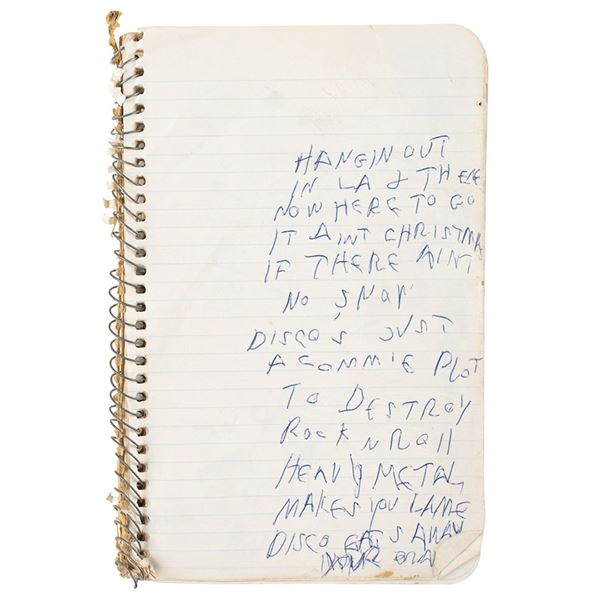 HANGIN OUT
IN LA & THERE
NOWHERE TO GO
IT AINT CHRISTMA
IF THERE AINT
NO SNOW
DISCO'S JUST
A COMMIE PLOT
TO DESTROY
ROCK N ROll
HEAVY METAL
MAKES YOU LAME
DISCO EATS AWAY